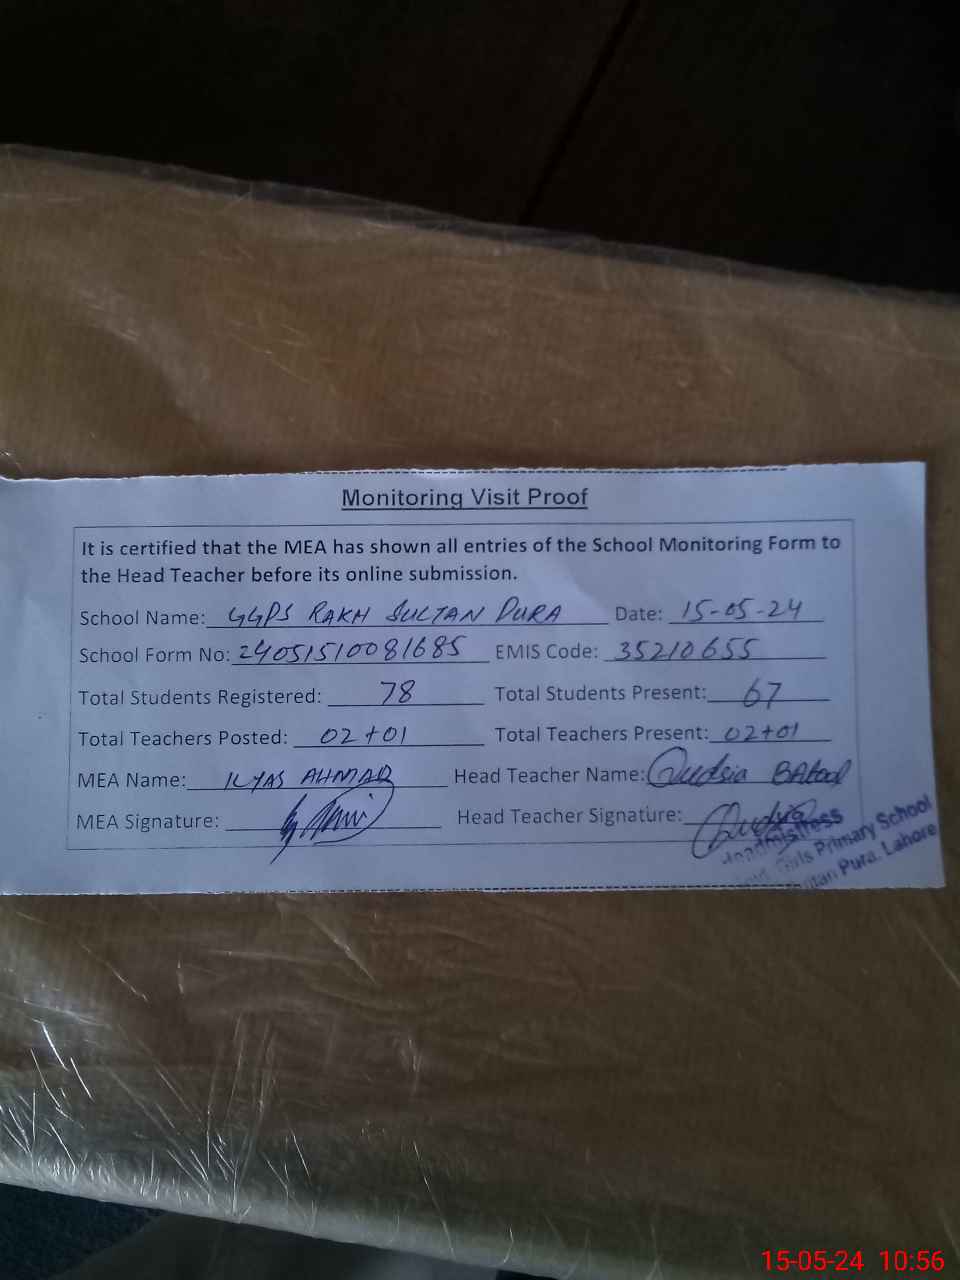 Monitoring Visit Proof
It is certified that the MEA has shown all entries of the School Monitoring Form to
the Head Teacher before its online submission.
School Name: GGPS RAKH SULTAN PURA Date: 15-05-24
School Form No: 24051510081685 EMIS Code: 35210655
Total Students Registered: 78 Total Students Present: 67
Total Teachers Posted: 02+01 Total Teachers Present: 02+01
MEA Name: ILYAS AHMAD Head Teacher Name: Qudsia BAtool
MEA Signature: Head Teacher Signature: Qudsia
Headmistress
Girls Primary School
Pura, Lahore
15-05-24 10:56